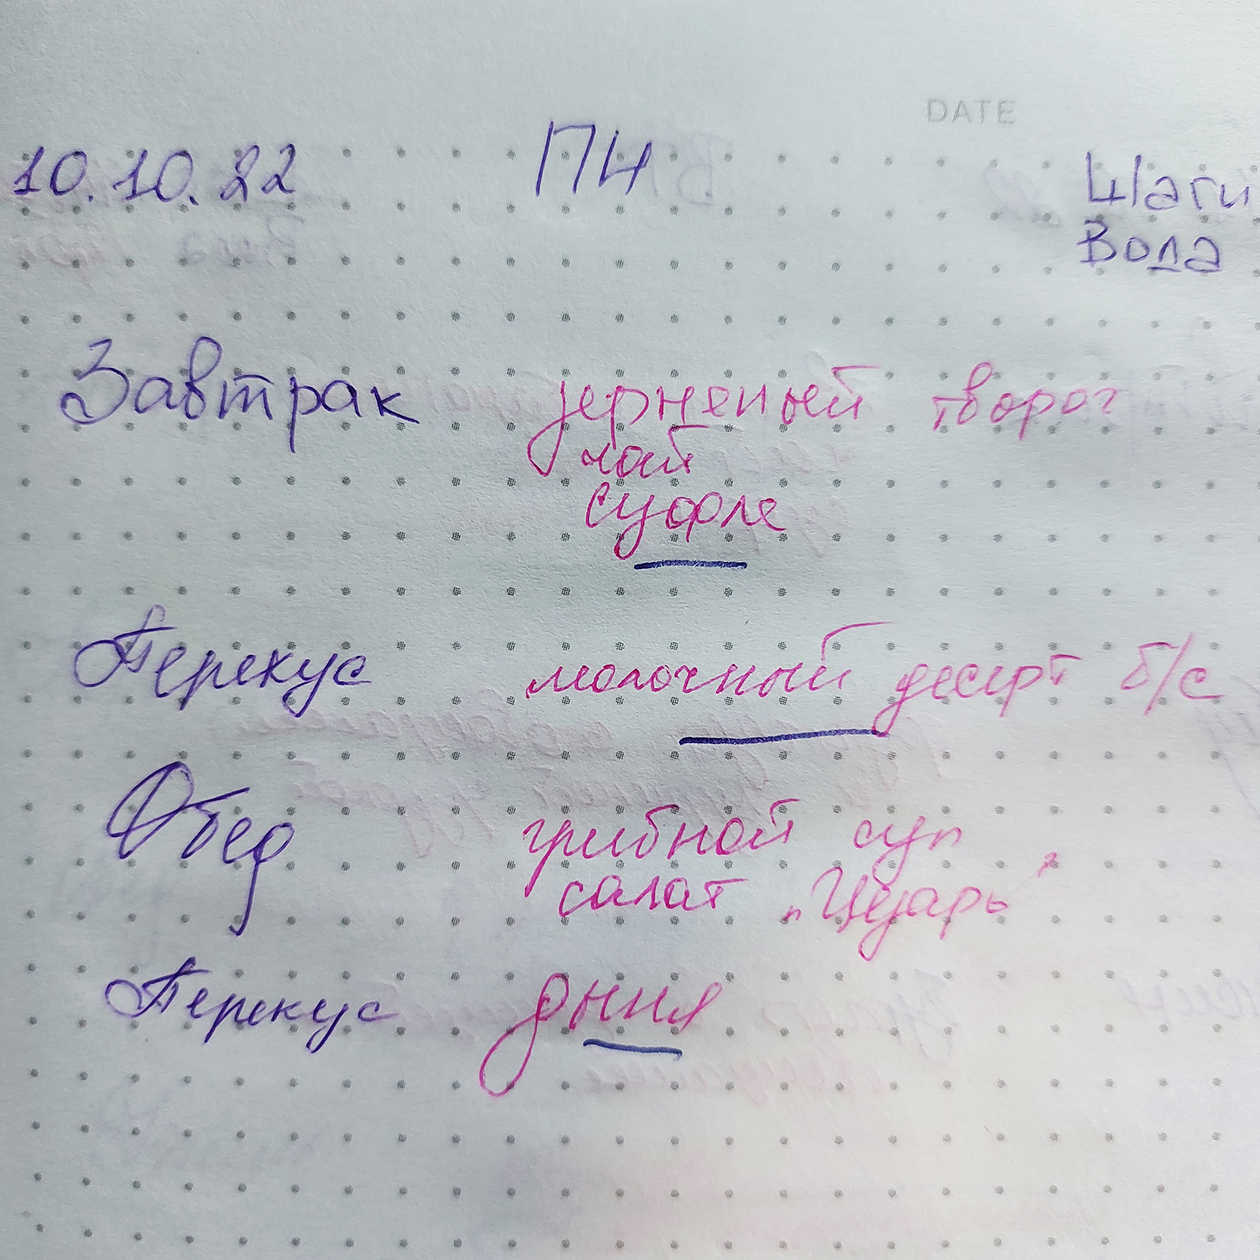 DATE
10.10.22 ПН Шаги
Вода
Завтрак зерненый творог
лайт
суфле
Перекус молочный десерт б/с
Обед грибной суп
салат "Цезарь"
Перекус дыня